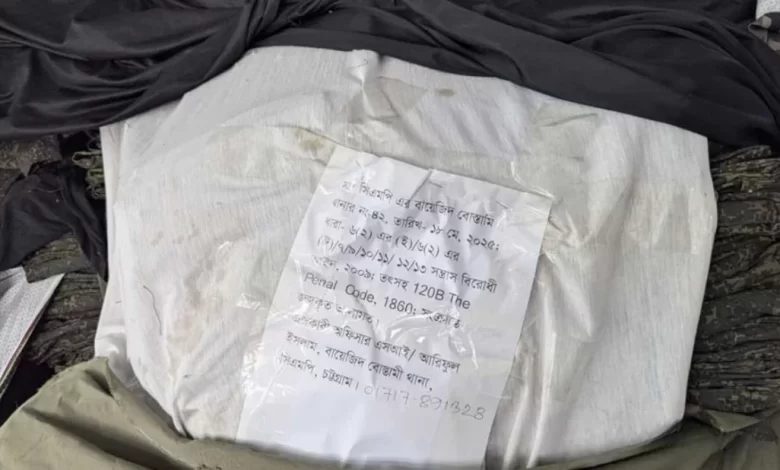 সিএমপি এর বায়েজিদ বোস্তামি
থানার নং-৪২, তারিখ- ১৮ মে, ২০২৫;
ধারা- ৬(২) এর (ই)/৬(২) এর
(ঈ)/৭/৯/১০/১১/ ১২/১৩ সন্ত্রাস বিরোধী
আইন, ২০০৯; তৎসহ 120B The
Penal Code, 1860; সংক্রান্ত
জব্দকৃত আলামত।
অফিসার এসআই/ আরিফুল
ইসলাম, বায়েজিদ বোস্তামী থানা,
সিএমপি, চট্টগ্রাম। 01717-891328